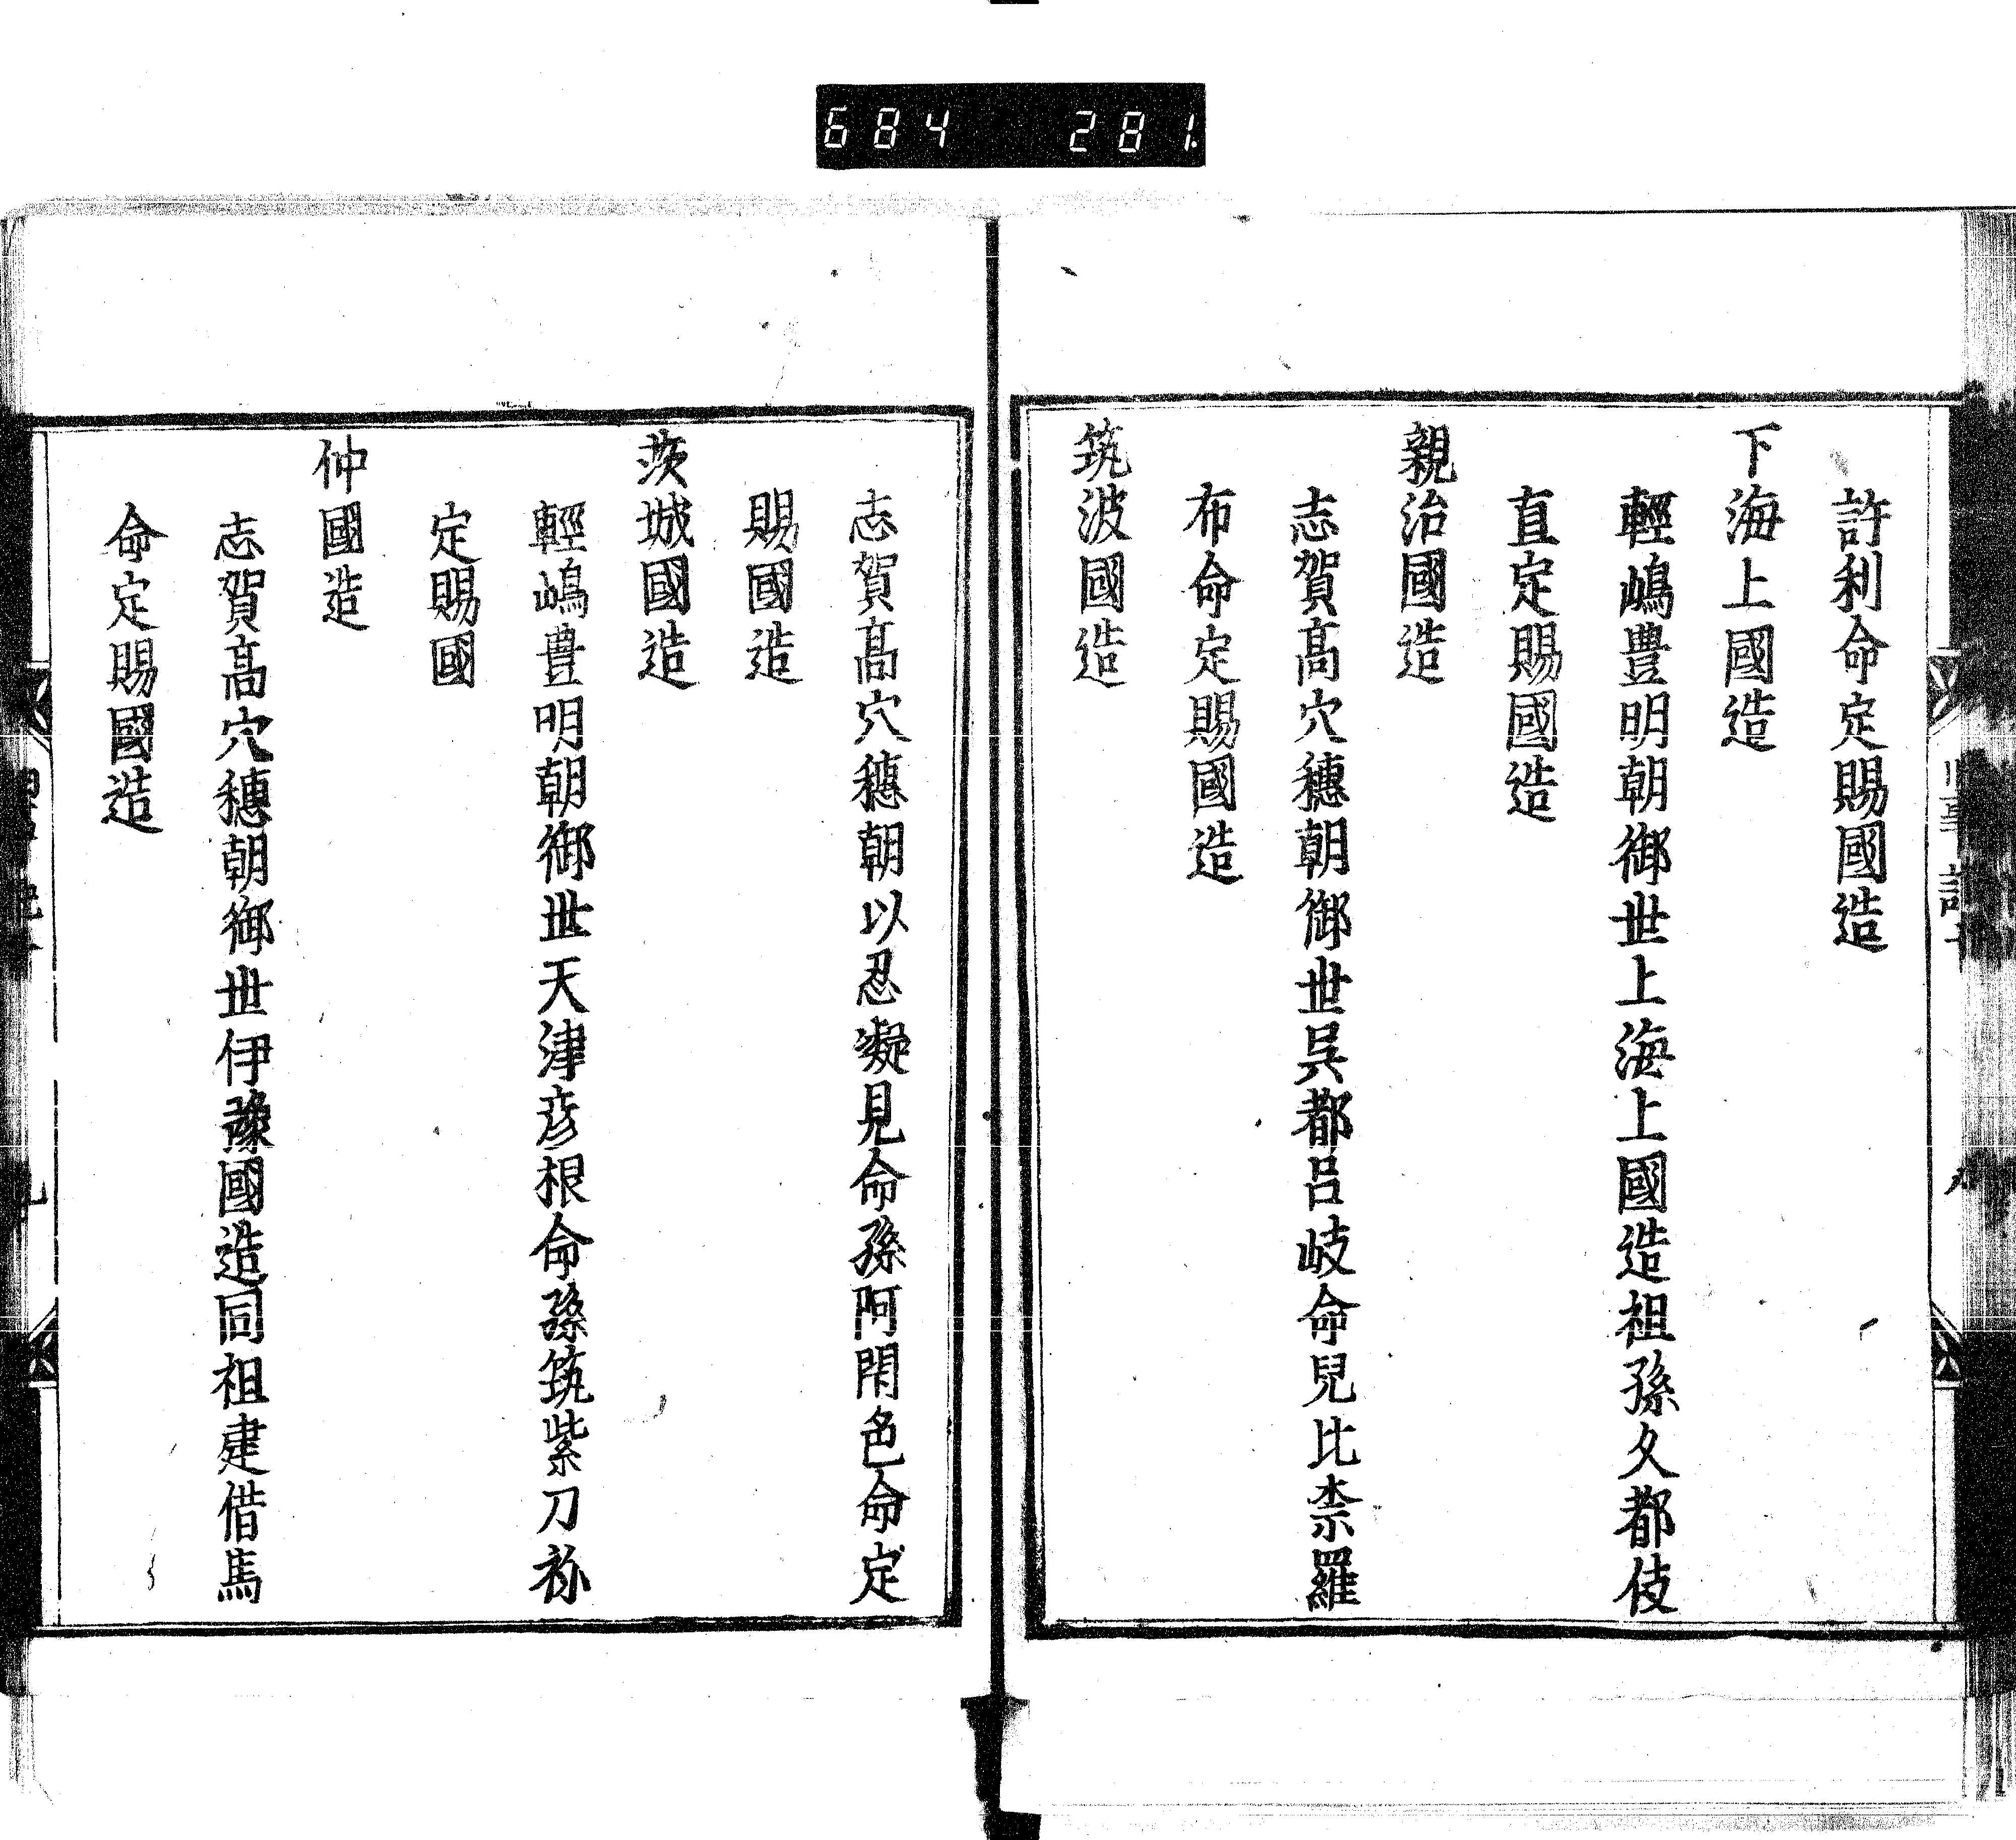 684 281
許利命定賜國造
下海上國造
輕嶋豊明朝御世上海上國造祖孫久都伎
直定賜國造
親治國造
志賀髙穴穗朝御世呉都呂岐命兒比柰羅
布命定賜國造
筑波國造
志賀髙穴穗朝以忍凝見命孫阿閇色命定
賜國造
茨城國造
輕嶋豊明朝御世天津彦根命孫筑紫刀祢
定賜國
仲國造
志賀髙穴穗朝御世伊豫國造同祖建借馬
命定賜國造